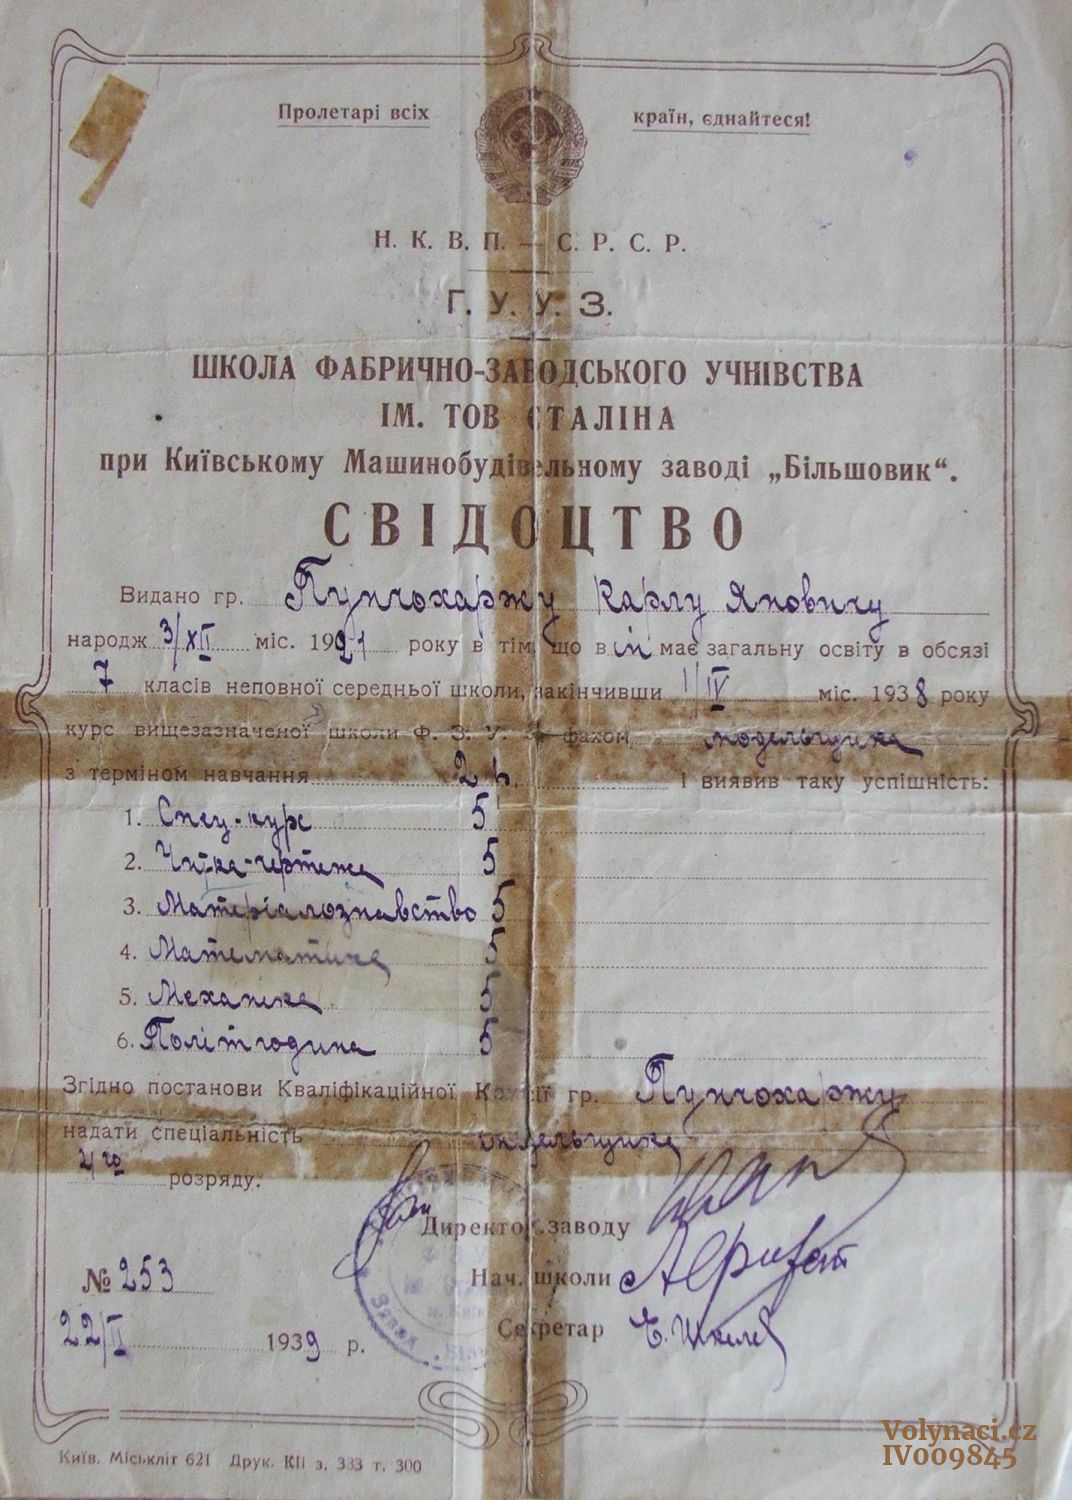 Пролетарі всіх країн, єднайтеся!
Н. К. В. П. — С. Р. С. Р.
Г. У. У. З.
ШКОЛА ФАБРИЧНО-ЗАВОДСЬКОГО УЧНІВСТВА
ІМ. ТОВ СТАЛІНА
при Київському Машинобудівельному заводі „Більшовик“.
СВІДОЦТВО
Видано гр. Пунчохаржу Карлу Яновичу
народж 3/XII міс. 1921 року в тім, що він має загальну освіту в обсязі
7 класів неповної середньої школи, закінчивши 1/IV міс. 1938 року
курс вищезазначеної школи Ф. З. У. за фахом модельщика
з терміном навчання 2 р. і виявив таку успішність:
1. Спец-курс 5
2. Читка-чертежа 5
3. Матеріалознавство 5
4. Математика 5
5. Механіка 5
6. Політгодина 5
Згідно постанови Кваліфікаційної Комісії гр. Пунчохаржу
надати спеціальність модельщика
4го розряду.
Директор заводу
№ 253
Нач. школи
Секретар
22/II 1939 р.
Київ. Міськліт 621 Друк. КІІ з. 383 т. 300
Volynaci.cz
IV009845